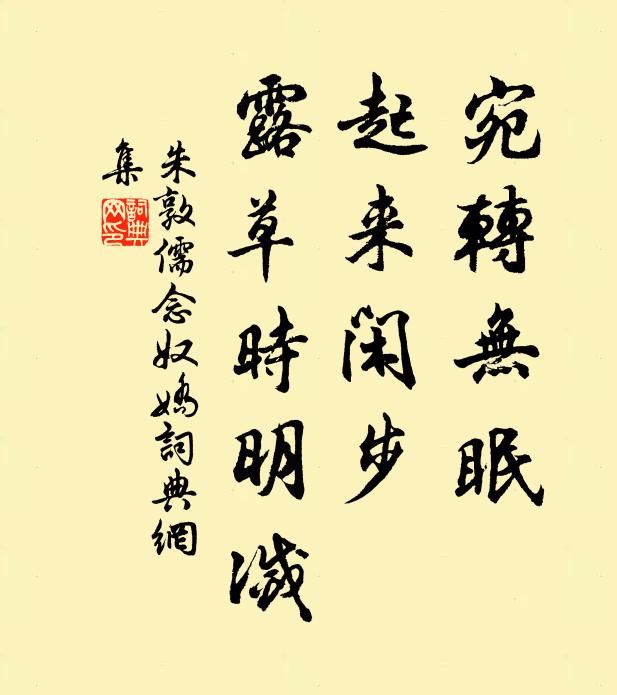 宛轉無眠
起来閑步
露草時明滅
朱敦儒念奴嬌詞典網
集
詞典
网印